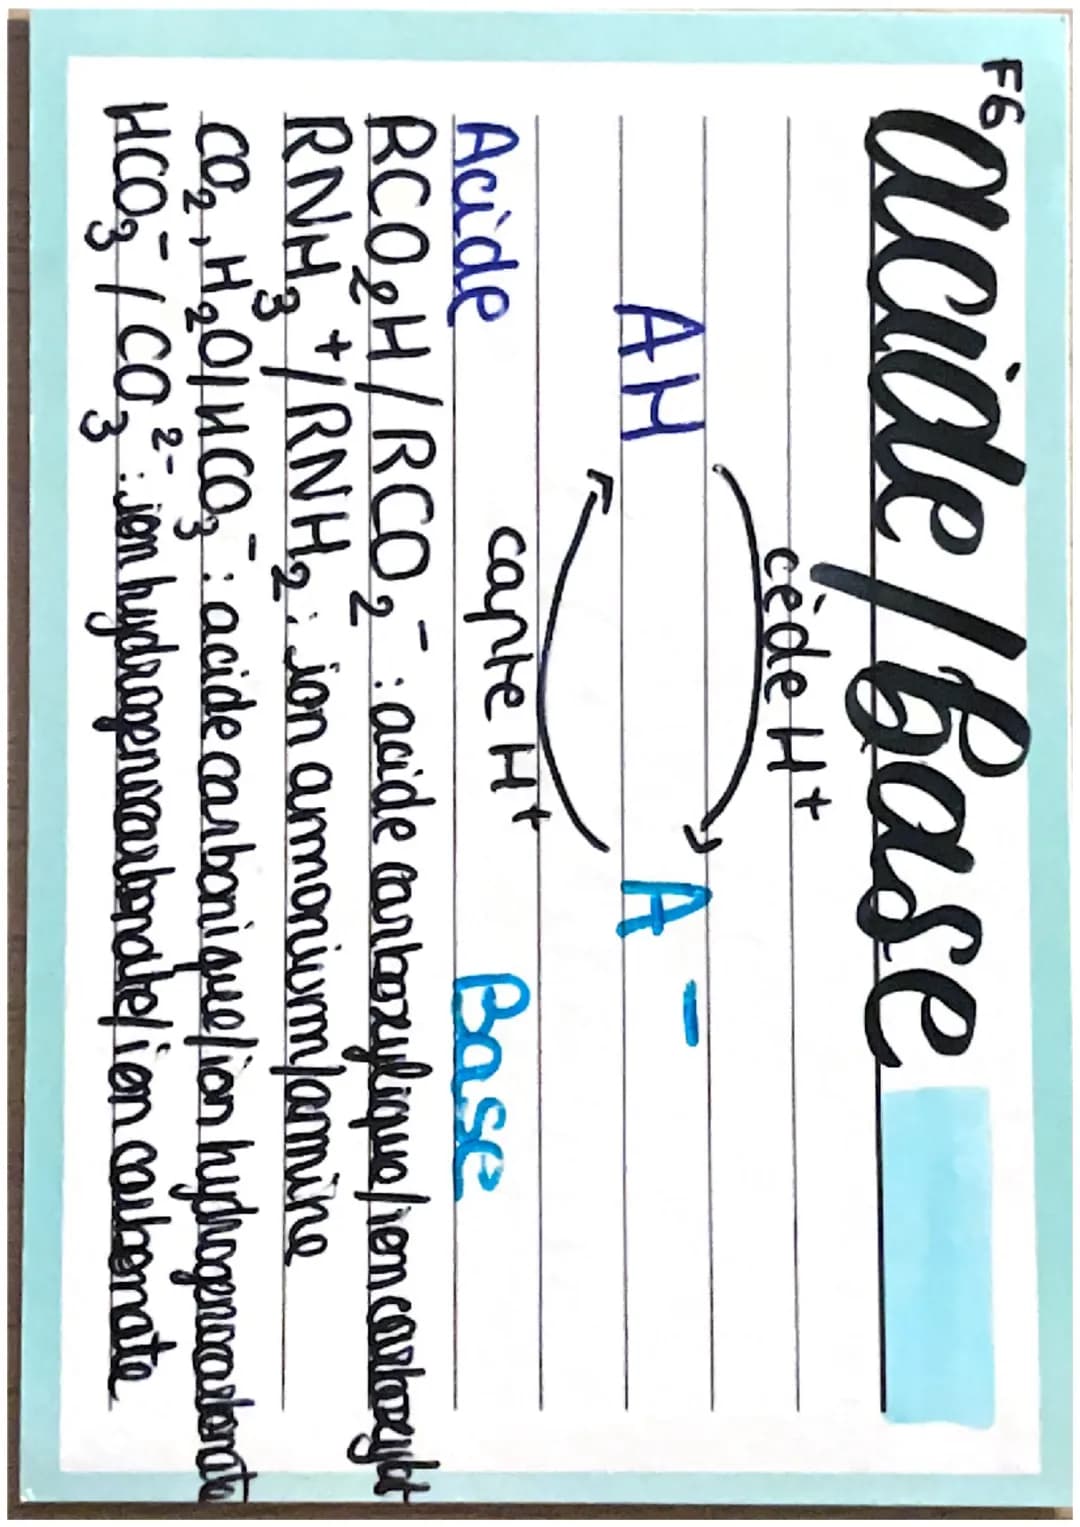 F6
acide/Base
cède H⁺
AH A⁻
capte H⁺
Acide Base
RCO₂H/RCO₂⁻ : acide carboxylique/ion carboxylat
RNH₃⁺/RNH₂ : ion ammonium/amine
CO₂,H₂O/HCO₃⁻ : acide carbonique/ion hydrogénocarbonate
HCO₃⁻/CO₃²⁻ : ion hydrogénocarbonate/ion carbonate